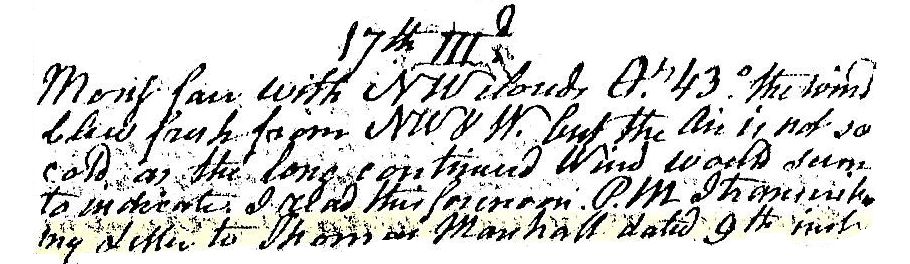 17th III d
Morng fair with NW clouds At. 43° the wind
blew fresh from NW & W. but the Air is not so
cold as the long continued Wind would seem
to indicate. I read this forenoon. P.M I transcribe
my Letter to Thomas Marshall dated 9th inst